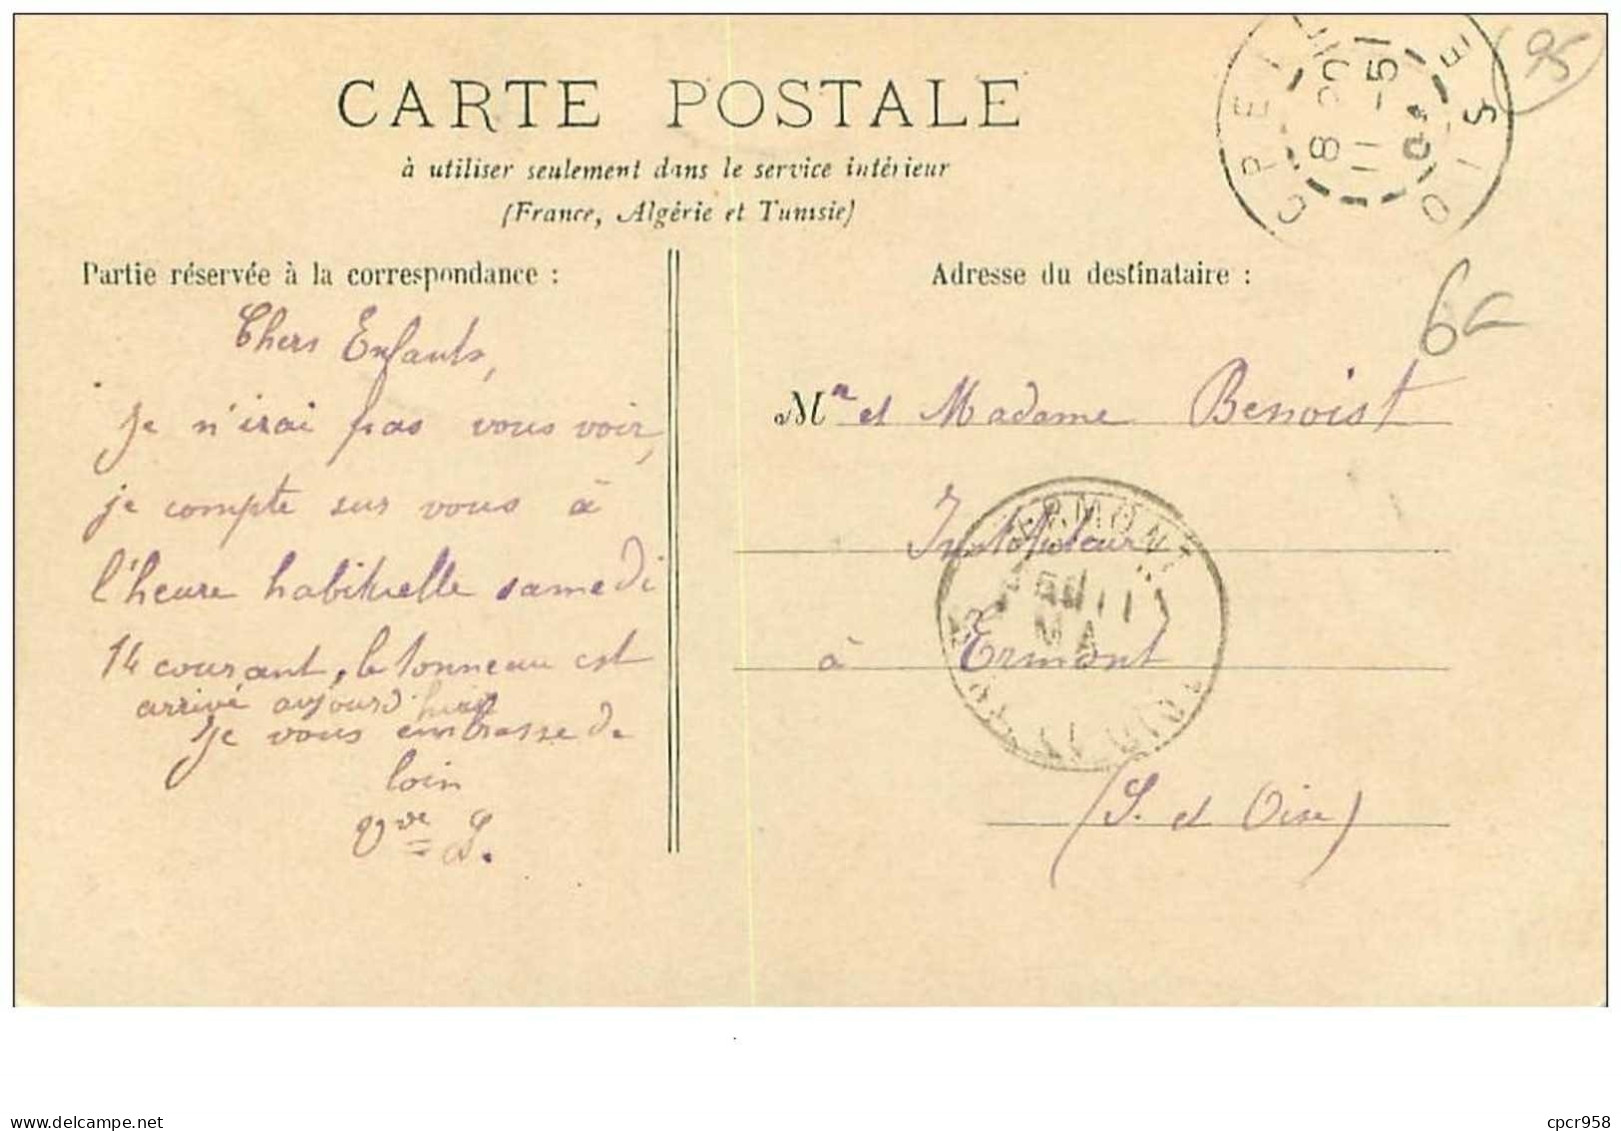 CARTE POSTALE
à utiliser seulement dans le service intérieur
(France, Algérie et Tunisie)
Partie réservée à la correspondance :
Chers Enfants,
je n'irai pas vous voir,
je compte sur vous à
l'heure habituelle samedi
14 courant, le tonneau est
arrivé aujourd'hui
Je vous embrasse de
loin
Vve L.
CREIL OISE
8 20
11 - 5
95
Adresse du destinataire :
6
Mr et Madame Benoist
Instituteur
à Ermont
(S. et Oise)
ERMONT
11
delcampe.net
cpcr958